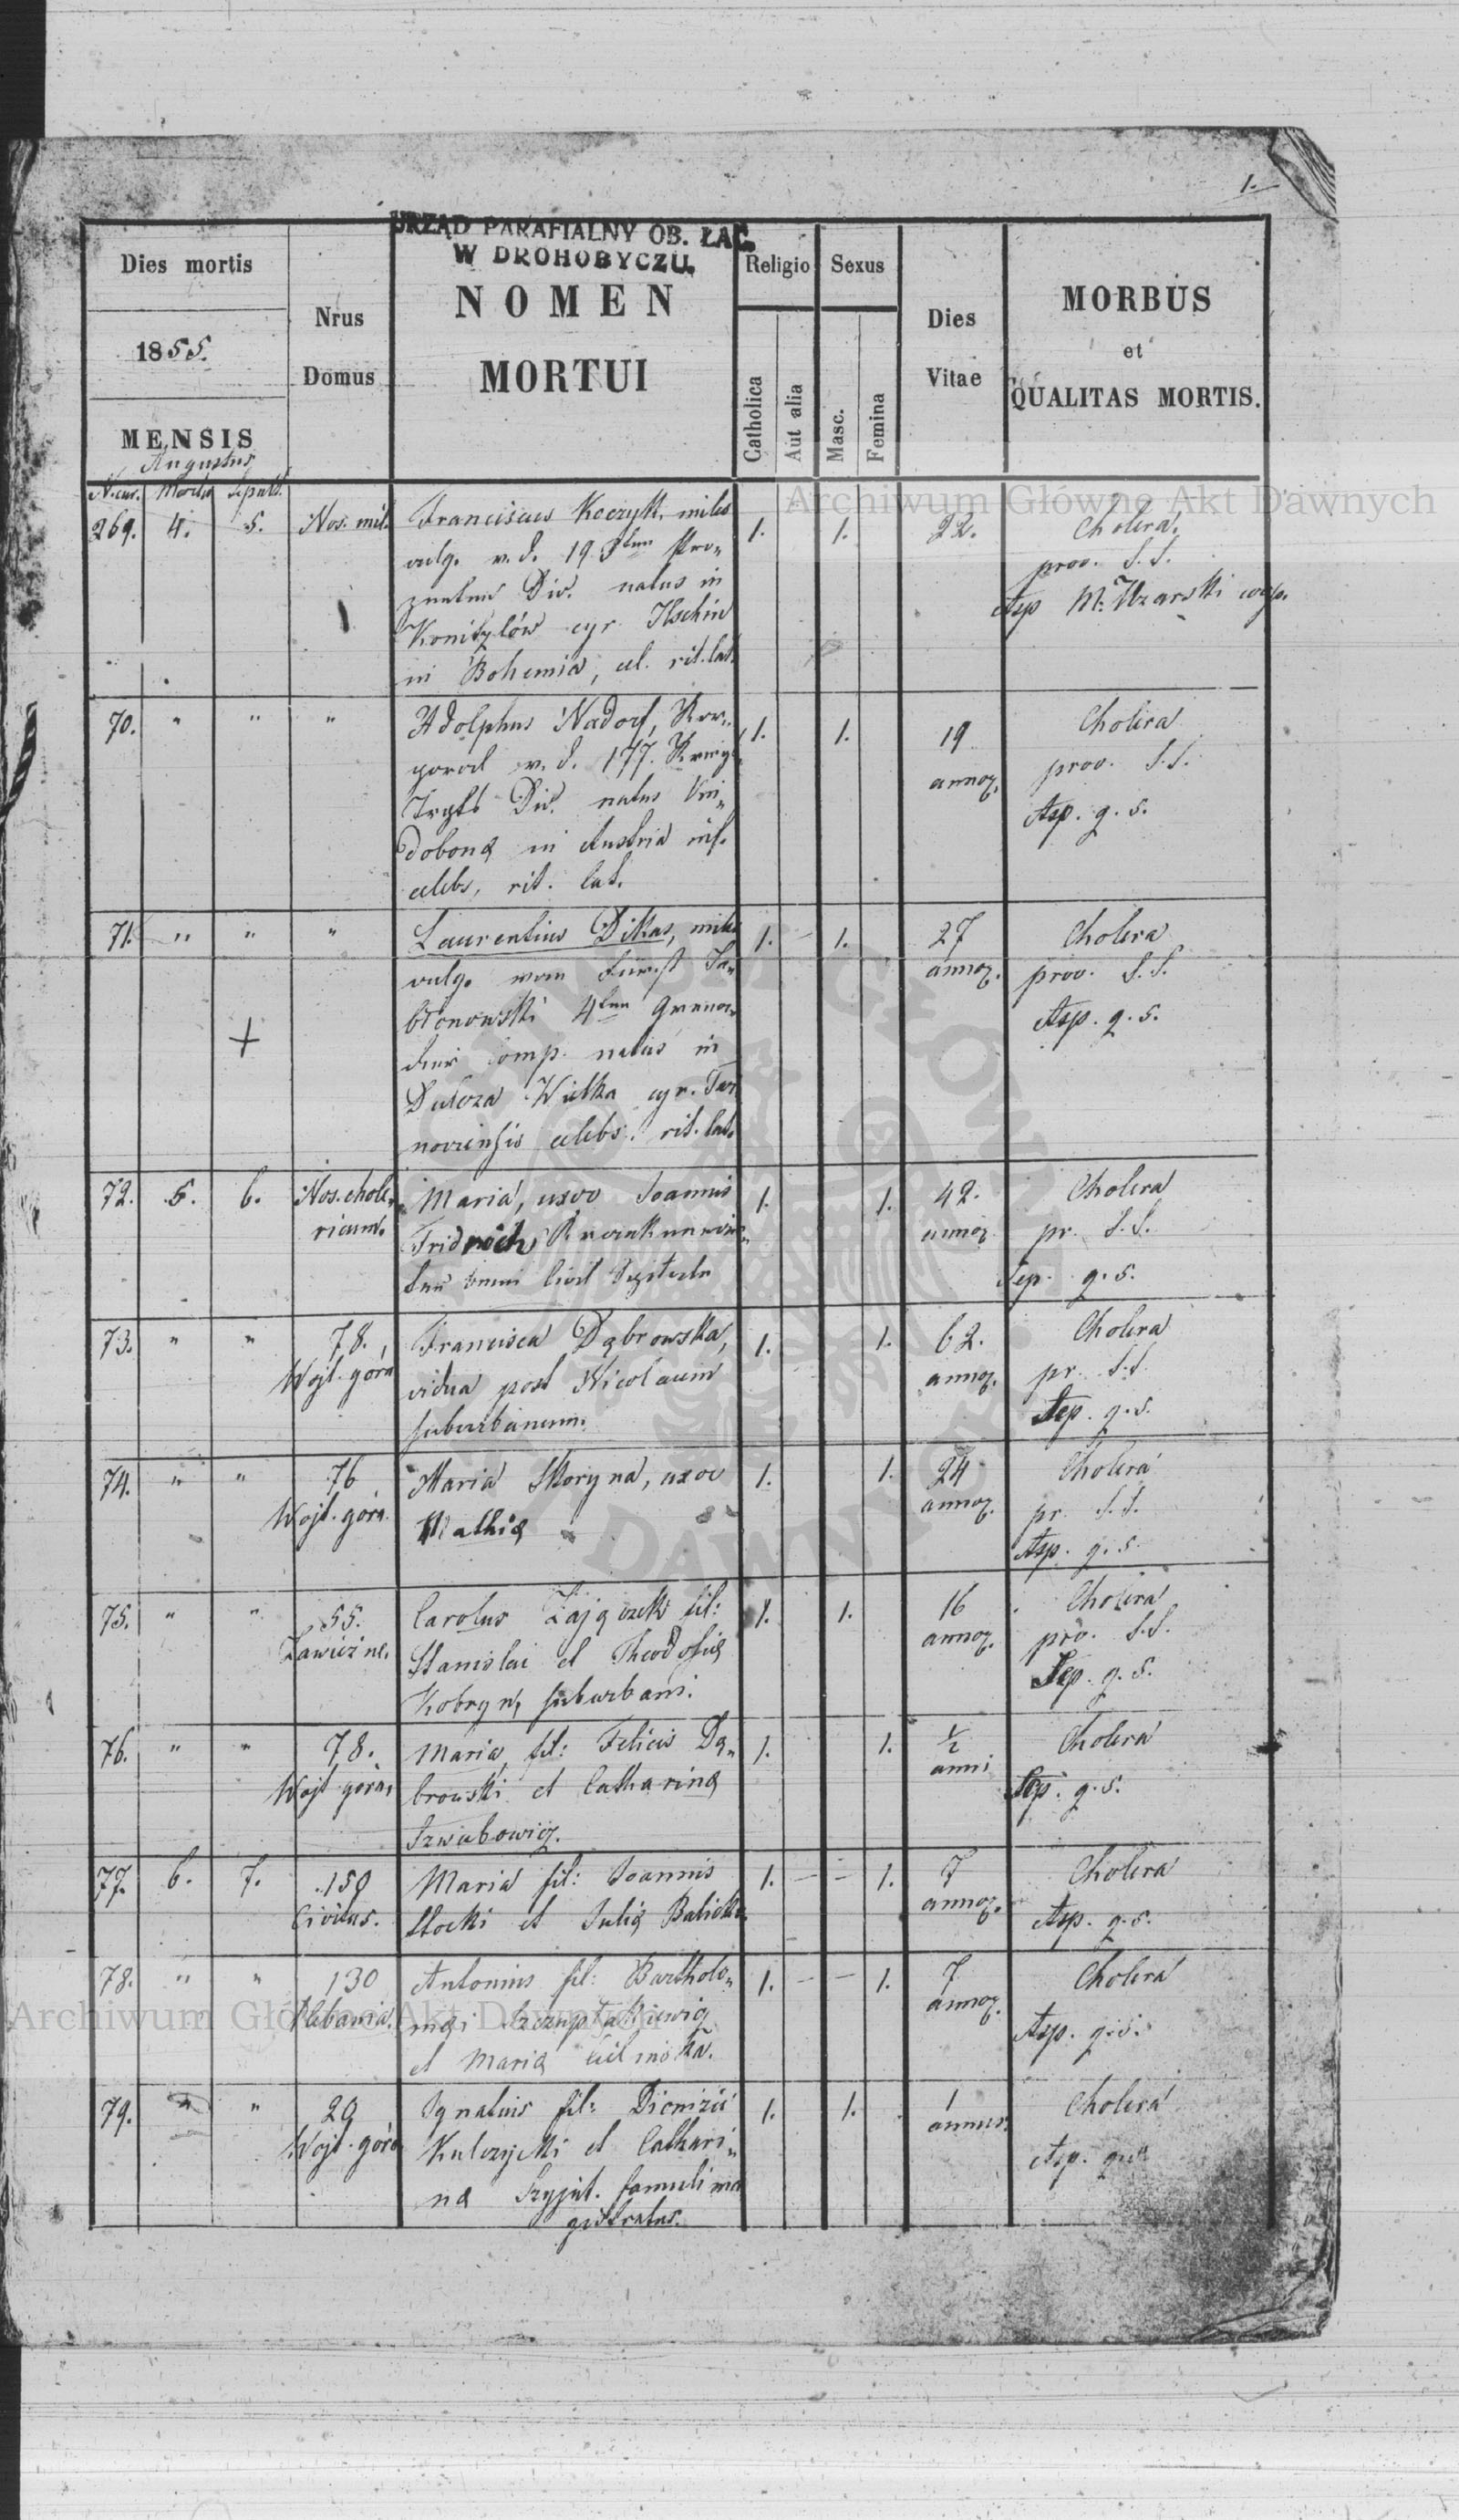 1.
URZĄD PARAFIALNY OB. ŁAC.
W DROHOBYCZU.
Dies mortis
1855.
MENSIS
Augustus
N. cur. Mortis Sepult.
Nrus
Domus
NOMEN
MORTUI
Religio
Catholica
Aut alia
Sexus
Masc.
Femina
Dies
Vitae
MORBUS
et
QUALITAS MORTIS.
Archiwum Główne Akt Dawnych
269. 4. 5. Hos. mil.
Franciscus Koczyk, miles
vulg. v. d. 19
Div. natus in
cyr.
in Bohemia, cel. rit. lat.
1. 1. 22.
Cholera.
prov. S.S.
70. " " "
Adolphus Nadorf,
v. d. 177.
Div. natus Vin„
dobonæ in Austria inf.
celebs, rit. lat.
1. 1. 19
annoꝝ.
Cholera
prov. S.S.
Asp. q. s.
71. " " "
Laurentius Dikas, miles
vulg. vom Fürst Ja„
błonowski 4ten
comp. natus in
Wielka cyr. Tar
noviensis celebs. rit. lat.
1. 1. 27
annoꝝ.
Cholera
prov. S.S.
Asp. q. s.
72. 5. 6. Hos. chole„
ricum.
Maria, uxor Joannis
1. 1. 42.
annoꝝ
Cholera
pr. S.S.
Sep. q. s.
73. " " 78.
Wojt. góra
Francisca Dąbrowska,
vidua post Nicolaum
suburbanum.
1. 1. 62.
annoꝝ.
Cholera
pr. S.S.
Sep. q. s.
74. " " 76
Wojt. góra.
Maria Skoryna, uxor
Mathiæ
1. 1. 24
annoꝝ.
Cholera
pr. S.S.
Asp. q. s.
75. " " 55.
Zawieżne.
Carolus Zajączek fil:
Stanislai et Theodosiæ
Kobryn, suburbani.
1. 1. 16
annoꝝ.
Cholera
pro. S.S.
Sep. q. s.
76. " " 78.
Wojt góra,
Maria, fil: Felicis Dą„
browski et Catharinæ
1. 1. ½
anni
Cholera
Sep. q. s.
77. 6. 7. 159
Civitas.
Maria fil: Joannis
Stocki et Juliæ Balicka
1. — — 1. 7
annoꝝ.
Cholera
Asp. q. s.
78. " " 130
Plebania.
Antonius fil: Bartholo„
mæi
et Mariæ
1. — — 1. 7
annoꝝ.
Cholera
Asp. q. s.
79. " " 20
Wojt. góra
Ignatius fil: Dionizii
Kulczycki et Cathari„
næ famuli ma
gistratus.
1. 1. 1
annus.
Cholera
Asp. q. s.
Archiwum Główne Akt Dawnych